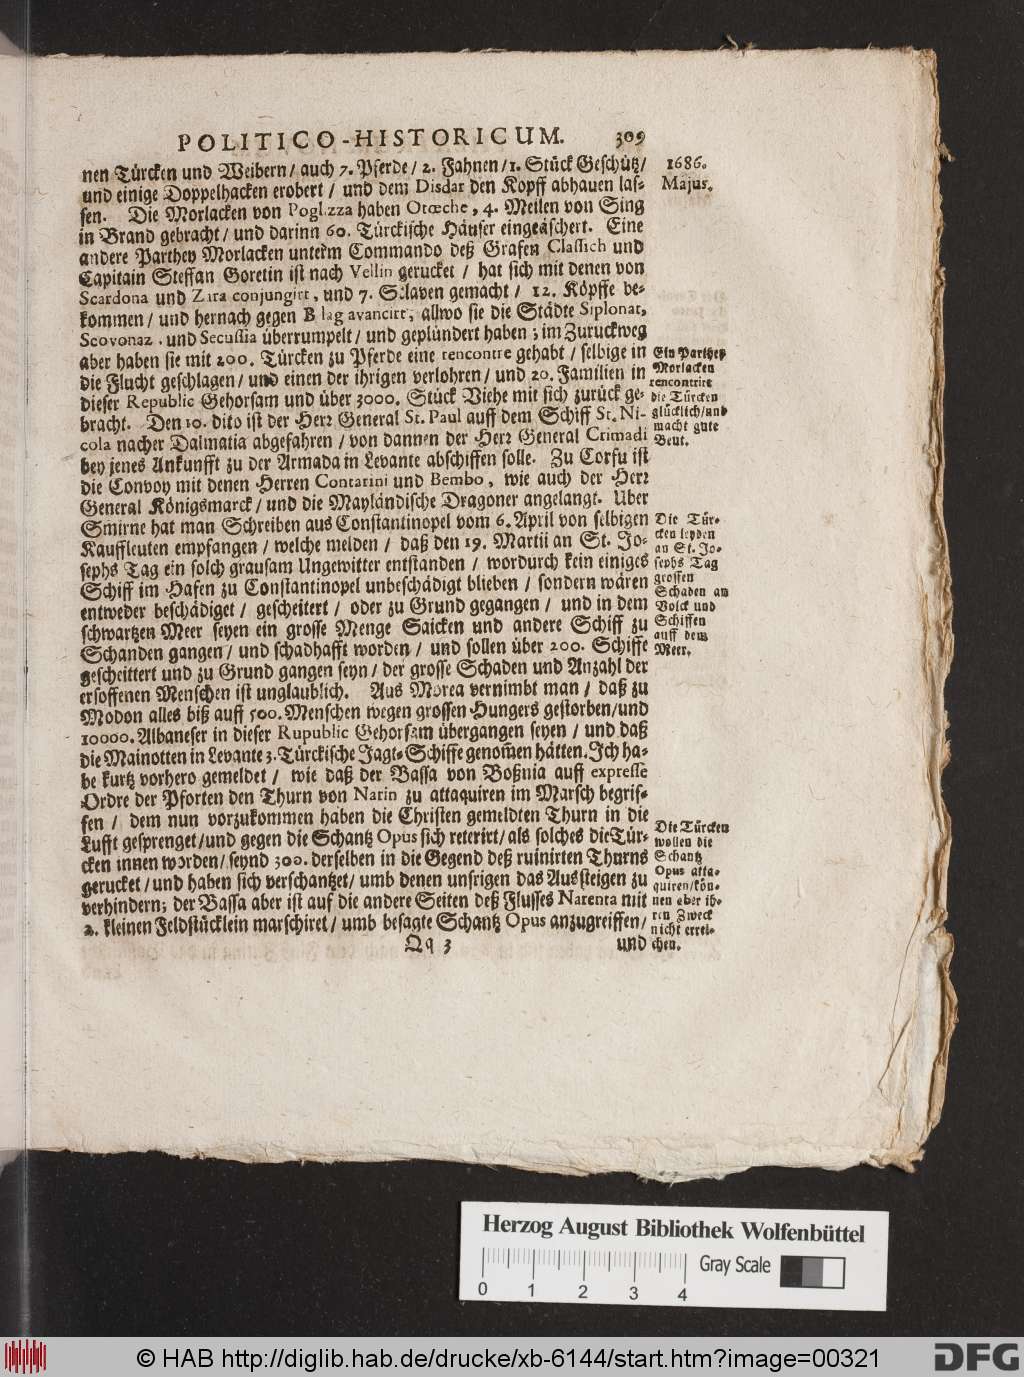 POLITICO-HISTORICUM. 309
nen Türcken und Weibern / auch 7. Pferde / 2. Fahnen / 1. Stück Geschütz /
und einige Doppelhacken erobert / und dem Disdar den Kopff abhauen las-
sen. Die Morlacken von Poglizza haben Otœche, 4. Meilen von Sing
in Brand gebracht / und darinn 60. Türckische Häuser eingeäschert. Eine
andere Parthey Morlacken unterm Commando deß Grafen Classich und
Capitain Steffan Goretin ist nach Vellin gerucket / hat sich mit denen von
Scardona und Zara conjungirt, und 7. Sclaven gemacht / 12. Köpffe be-
kommen / und hernach gegen Blag avancirt, allwo sie die Städte Siplonat,
Scovonaz, und Secussia überrumpelt / und geplündert haben; im Zuruckweg
aber haben sie mit 200. Türcken zu Pferde eine rencontre gehabt / selbige in
die Flucht geschlagen / und einen der ihrigen verlohren / und 20. Familien in
dieser Republic Gehorsam und über 3000. Stück Viehe mit sich zurück ge-
bracht. Den 10. dito ist der Herr General St. Paul auff dem Schiff St. Ni-
cola nacher Dalmatia abgefahren / von dannen der Herr General Crimadi
bey jenes Ankunfft zu der Armada in Levante abschiffen solle. Zu Corfu ist
die Convoy mit denen Herren Contarini und Bembo, wie auch der Herr
General Königsmarck / und die Mayländische Dragoner angelangt. Uber
Smirne hat man Schreiben aus Constantinopel vom 6. April von selbigen
Kauffleuten empfangen / welche melden / daß den 19. Martii an St. Jo-
sephs Tag ein solch grausam Ungewitter entstanden / wordurch kein einiges
Schiff im Hafen zu Constantinopel unbeschädigt blieben / sondern wären
entweder beschädiget / gescheitert / oder zu Grund gegangen / und in dem
schwartzen Meer seyen ein grosse Menge Saicken und andere Schiff zu
Schanden gangen / und schadhafft worden / und sollen über 200. Schiffe
gescheittert und zu Grund gangen seyn / der grosse Schaden und Anzahl der
ersoffenen Menschen ist unglaublich. Aus Morea vernimbt man / daß zu
Modon alles biß auff 500. Menschen wegen grossen Hungers gestorben / und
10000. Albaneser in dieser Rupublic Gehorsam übergangen seyen / und daß
die Mainotten in Levante 3. Türckische Jagt-Schiffe genom̄en hätten. Ich ha-
be kurtz vorhero gemeldet / wie daß der Bassa von Boßnia auff expresse
Ordre der Pforten den Thurn von Narin zu attaquiren im Marsch begrif-
fen / dem nun vorzukommen haben die Christen gemeldten Thurn in die
Lufft gesprenget / und gegen die Schantz Opus sich reterirt / als solches die Tür-
cken innen worden / seynd 300. derselben in die Gegend deß ruinirten Thurns
gerucket / und haben sich verschantzet / umb denen unsrigen das Aussteigen zu
verhindern; der Bassa aber ist auf die andere Seiten deß Flusses Narenta mit
2. kleinen Feldstücklein marschiret / umb besagte Schantz Opus anzugreiffen /
Qq 3 und
1686.
Majus.
Ein Parthey
Morlacken
rencontrirt
die Türcken
glücklich / und
macht gute
Beut.
Die Tür-
cken leyden
an St. Jo-
sephs Tag
grossen
Schaden an
Volck und
Schiffen
auff dem
Meer.
Die Türcken
wollen die
Schantz
Opus atta-
quiren / kön-
nen aber ih-
ren Zweck
nicht errei-
chen.
Herzog August Bibliothek Wolfenbüttel
0 1 2 3 4
Gray Scale
© HAB http://diglib.hab.de/drucke/xb-6144/start.htm?image=00321
DFG